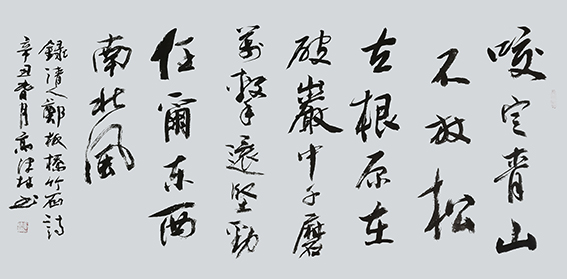 咬定青山
不放松
立根原在
破巖中千磨
萬擊還堅勁
任爾东西
南北風
錄清人鄭板橋竹石詩
辛丑 月高 书